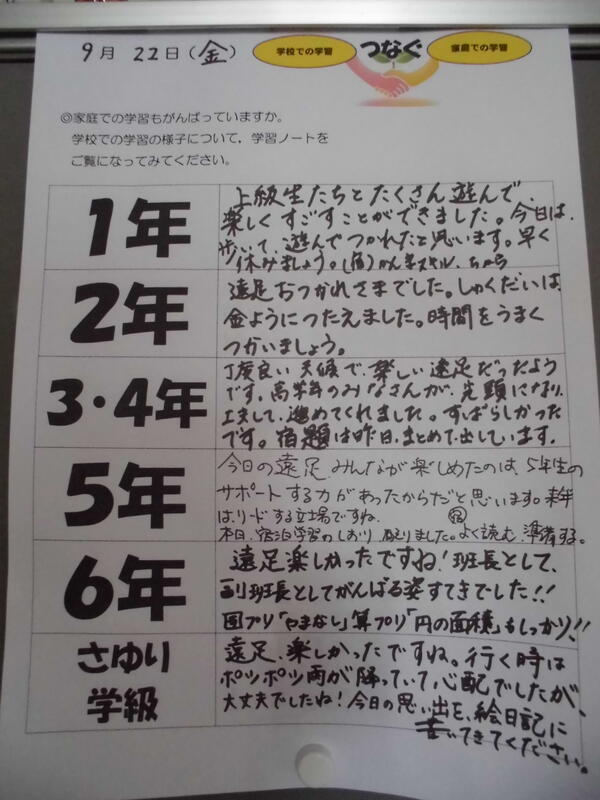 9月 22日(金)
学校での学習
つなぐ
家庭での学習
◎家庭での学習もがんばっていますか。
学校での学習の様子について,学習ノートを
ご覧になってみてください。
1年
上級生たちとたくさん遊んで、
楽しくすごすことができました。今日は、
歩いて、遊んでつかれたと思います。早く
休みましょう。(宿)かん字スキル、
2年
遠足おつかれさまでした。しゅくだいは
金ようにつたえました。時間をうまく
つかいましょう。
3・4年
丁度良い天候で、楽しい遠足だったよう
です。高学年のみなさんが、先頭になり、
工夫して、進めてくれました。すばらしかった
です。宿題は昨日、まとめて、出しています。
5年
今日の遠足、みんなが楽しめたのは、5年生の
サポートする力があったからだと思います。来年
は、リードする立場ですね。
宿
本日、宿泊学習のしおり 配りました。よく読む、準備する。
6年
遠足楽しかったですね!班長として、
副班長としてがんばる姿すてきでした!!
国プリ「やまなし」算プリ「円の面積」もしっかり!!
さゆり
学級
遠足、楽しかったですね。行く時は
ポツポツ雨が降っていて、心配でしたが、
大丈夫でしたね!今日の思い出を、絵日記に
書いてきてください。